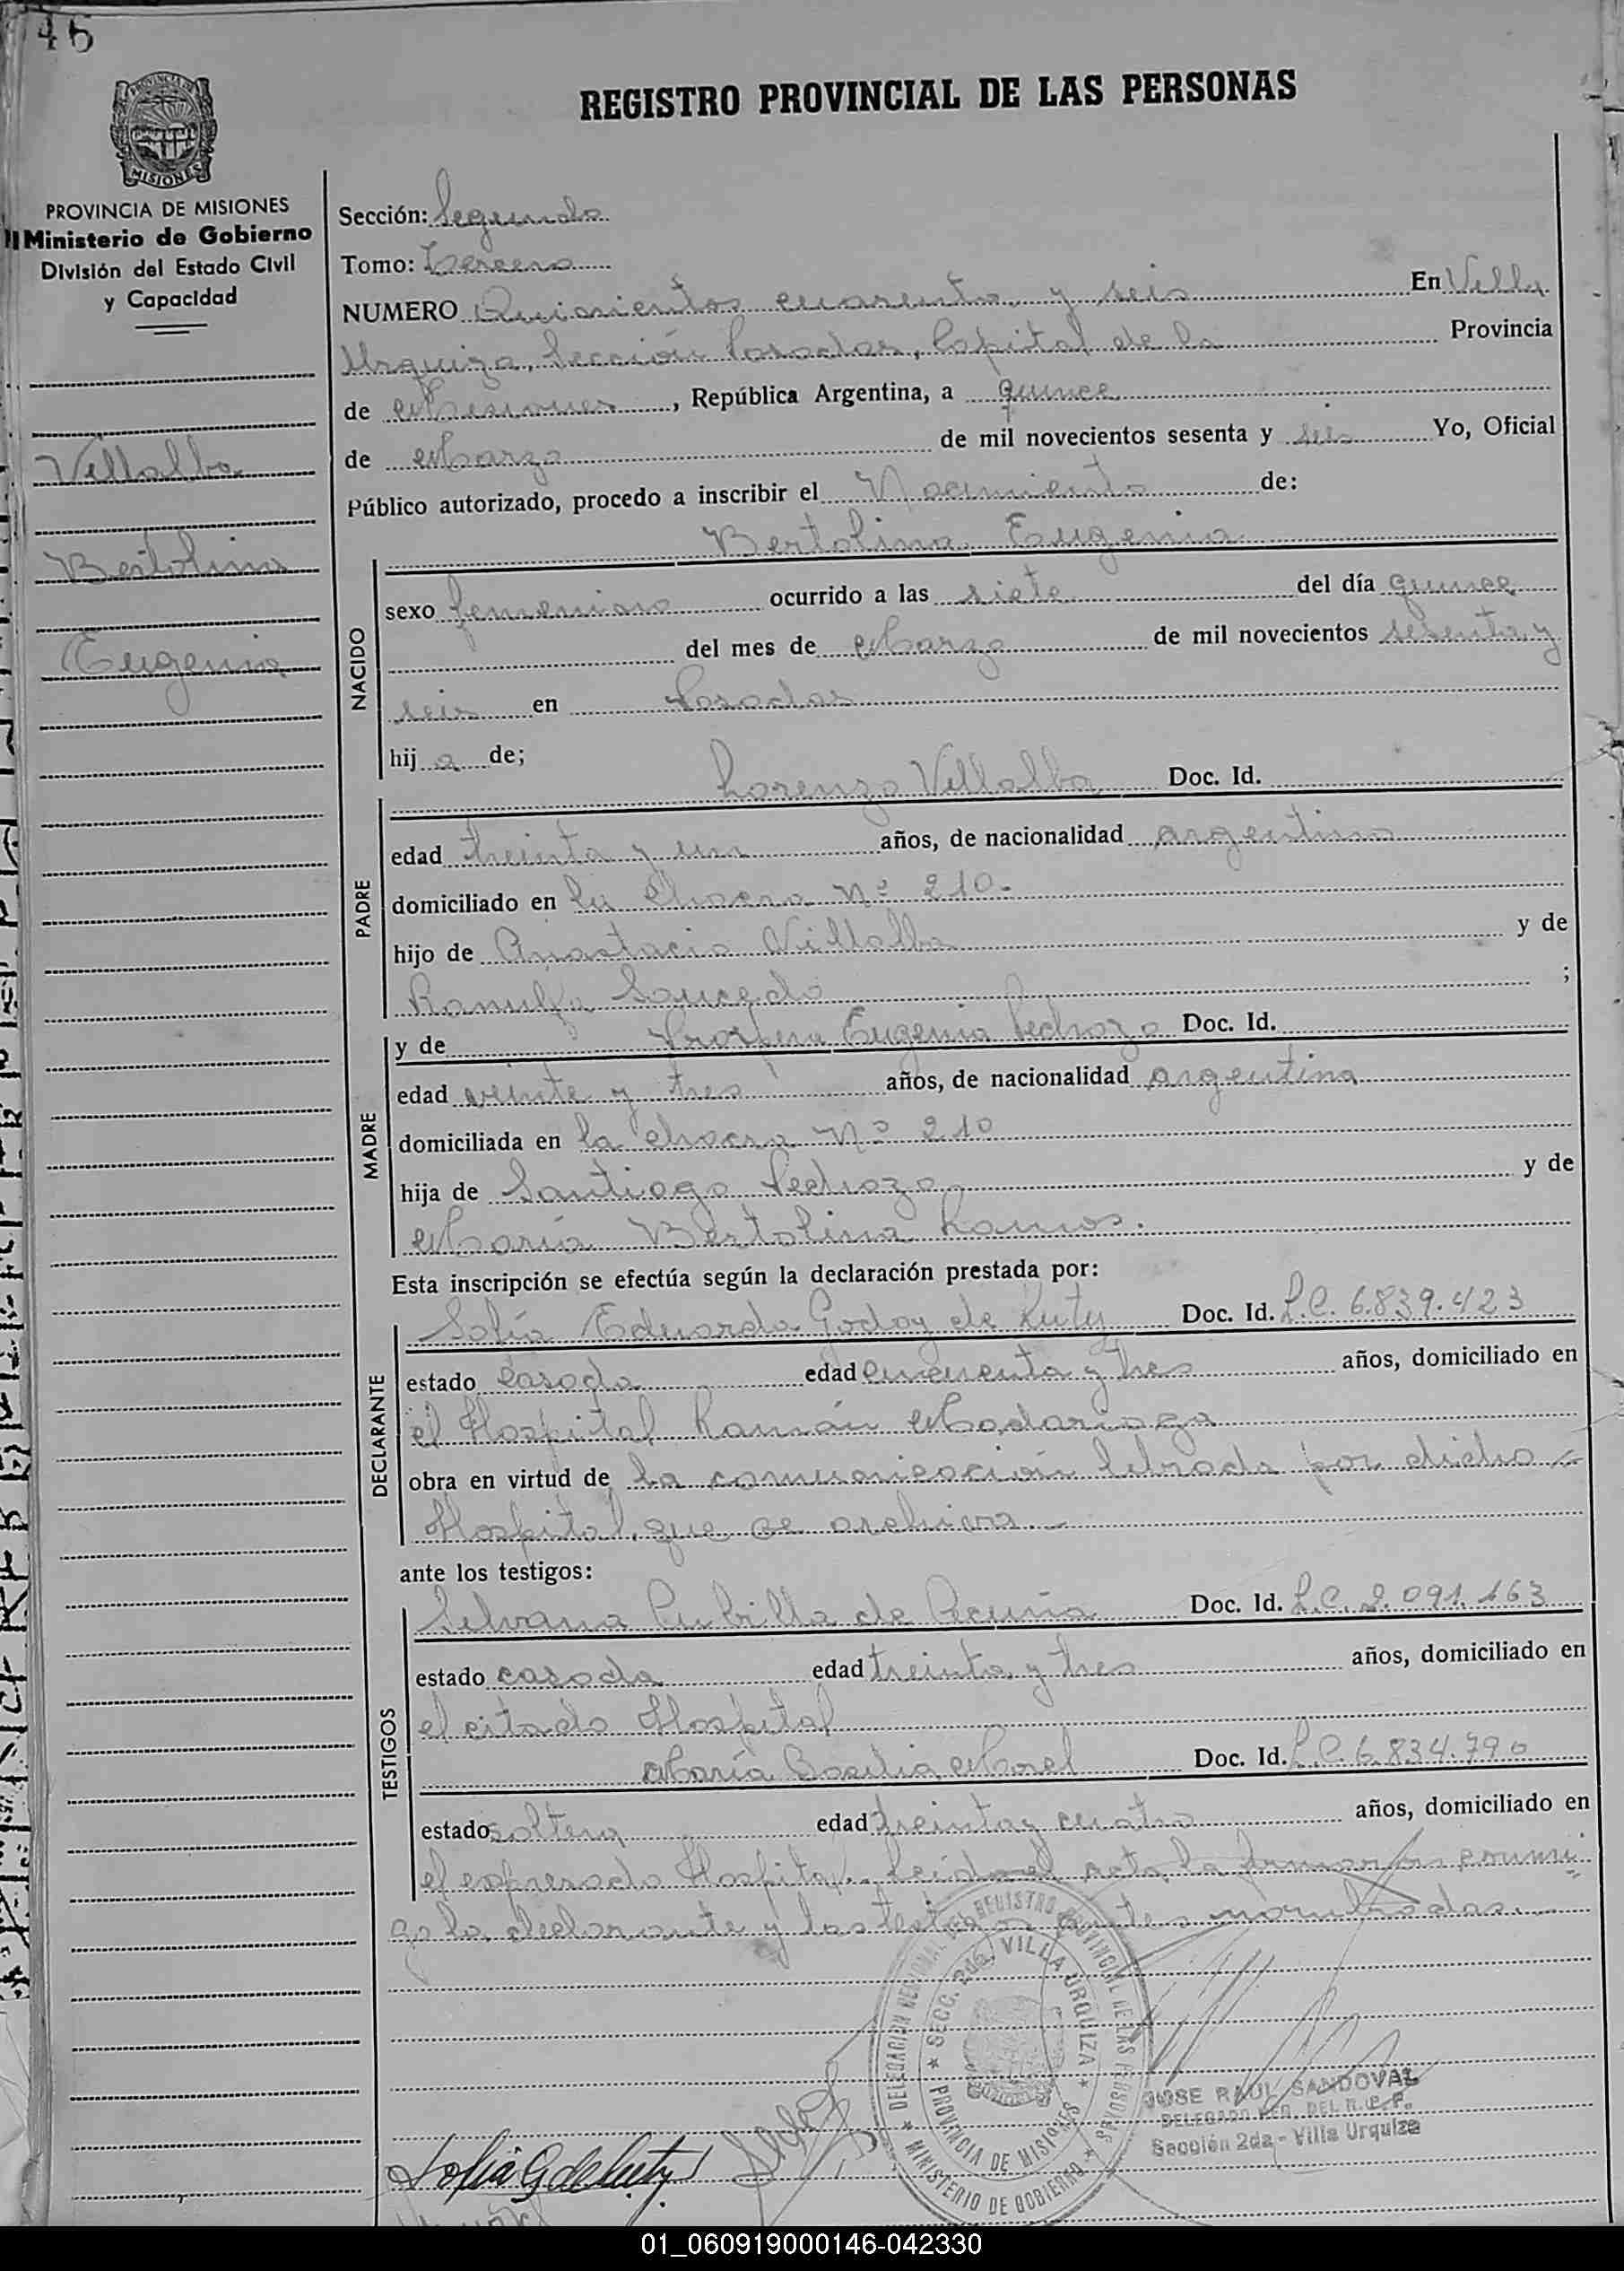 45
REGISTRO PROVINCIAL DE LAS PERSONAS
PROVINCIA DE MISIONES
Ministerio de Gobierno
División del Estado Civil
y Capacidad
Villalba
Bertolina
Eugenia
Sección: Segunda
Tomo: Tercero
NUMERO Quinientos cuarenta y seis En Villa
Urquiza, Sección Posadas, Capital de la Provincia
de Misiones, República Argentina, a quince
de Marzo de mil novecientos sesenta y seis Yo, Oficial
Público autorizado, procedo a inscribir el Nacimiento de:
Bertolina Eugenia
NACIDO
sexo femenino ocurrido a las siete del día quince
del mes de Marzo de mil novecientos sesenta y
seis en Posadas
hij a de;
Lorenzo Villalba Doc. Id.
PADRE
edad treinta y un años, de nacionalidad argentino
domiciliado en la chacra Nº 210.-
hijo de Anastacio Villalba y de
Ramulfa Saucedo ;
MADRE
y de Eugenia Pedrozo Doc. Id.
edad veinte y tres años, de nacionalidad argentina
domiciliada en la chacra Nº 210
hija de Santiago Pedrozo y de
María Bertolina Ramos.
Esta inscripción se efectúa según la declaración prestada por:
DECLARANTE
Sofía Eduarda Godoy de Kuty Doc. Id. L.C. 6.839.423
estado casada edad cincuenta y tres años, domiciliado en
el Hospital Ramón Madariaga
obra en virtud de la comunicación librada por dicho
Hospital, que se archiva.-
ante los testigos:
TESTIGOS
Silvana Cubilla de Acuña Doc. Id. L.C. 2.091.163
estado casada edad treinta y tres años, domiciliado en
el citado Hospital
María Basilia Morel Doc. Id. L.C. 6.834.790
estado soltera edad treinta y cuatro años, domiciliado en
el expresado Hospital.- Leída el acta, la firmaron conmi
go la declarante y los testigos antes nombrados.-
DELEGACION REGIONAL DEL REGISTRO PROVINCIAL DE LAS PERSONAS
MINISTERIO DE GOBIERNO
SECC. 2da. VILLA URQUIZA
PROVINCIA DE MISIONES
JOSE RAUL SANDOVAL
DELEGADO REG. DEL R. P. P.
Sección 2da - Villa Urquiza
Sofia G de Kuty
01_060919000146-042330